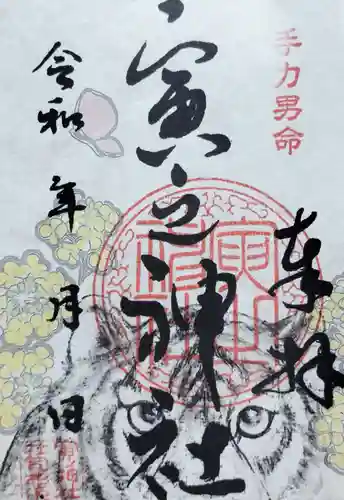 手力男命
奉拝
寅之神社
令和 年 月 日